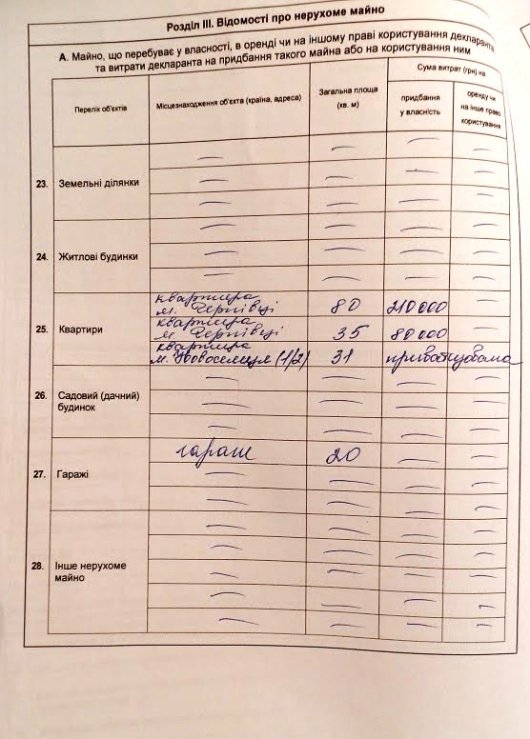 Розділ III. Відомості про нерухоме майно
А. Майно, що перебуває у власності, в оренді чи на іншому праві користування декларанта,
та витрати декларанта на придбання такого майна або на користування ним
Перелік об'єктів
Місцезнаходження об'єкта (країна, адреса)
Загальна площа
(кв. м)
Сума витрат (грн) на
придбання
у власність
оренду чи
на інше право
користування
23. Земельні ділянки
24. Житлові будинки
25. Квартири
квартира
м. Чернівці 80 210 000
квартира
м. Чернівці 35 80 000
квартира
м. Новоселиця (1/2) 31 приватизована
26. Садовий (дачний)
будинок
27. Гаражі
гараж 20
28. Інше нерухоме
майно